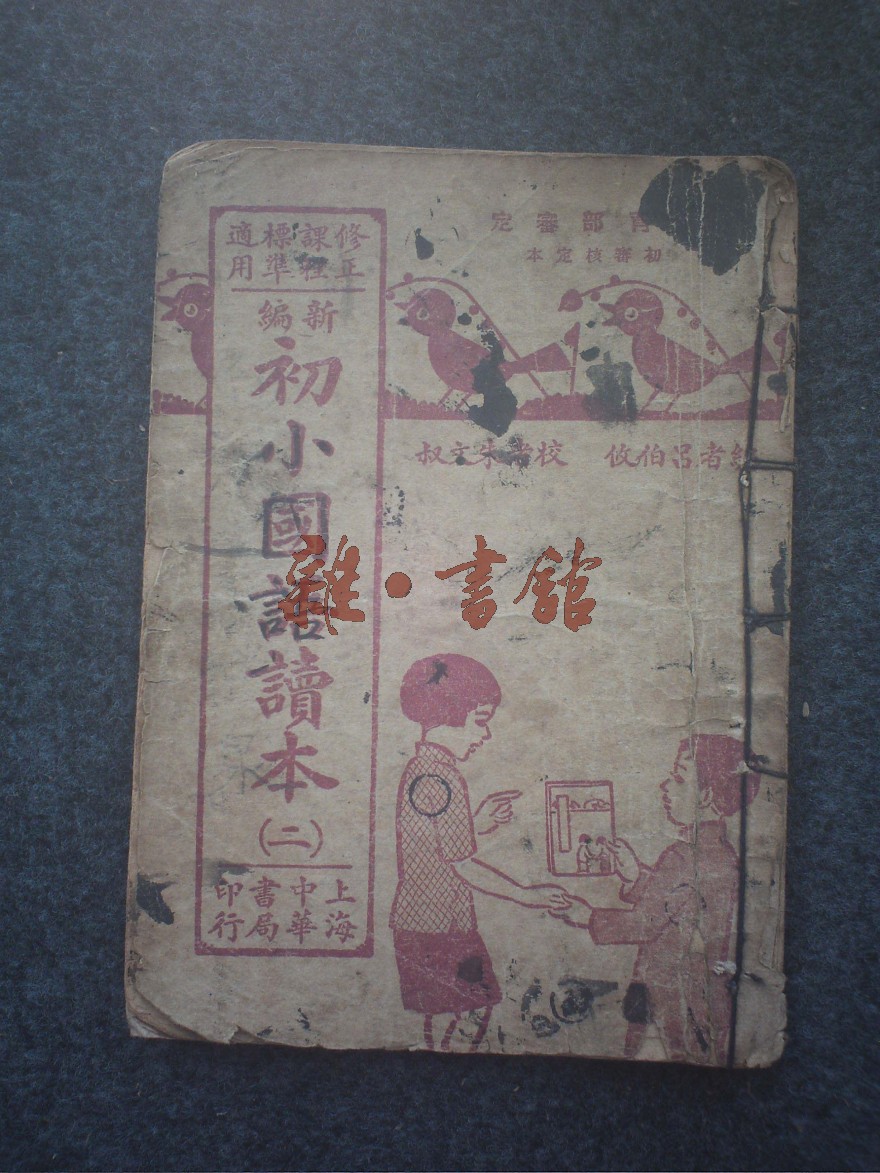 育部審定
初審核定本
編者呂伯攸 校者朱文叔
修正課程標準適用
新編
初小國語讀本
(二)
上海中華書局印行
雜·書館